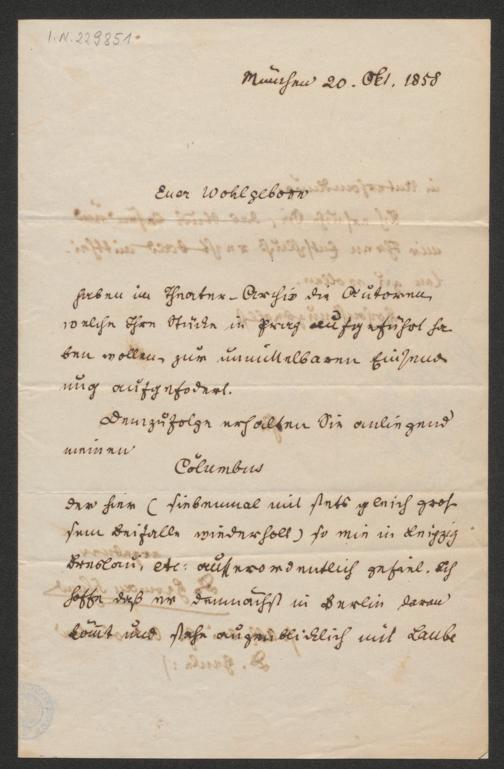 I.N. 229851
München 20. Okt. 1858
Euer Wohlgeborn
haben im Theater-Archiv die Autoren,
welche Ihre Stücke in Prag aufgeführt ha
ben wollen, zur unmittelbaren Einsend
ung aufgefodert.
Demzufolge erhalten Sie anliegend
meinen
Columbus
der hier (siebenmal mit stets gleich gros
sem Beifalle wiederholt) so wie in Leipzig
Breslau, etc: ausserordentlich gefiel. Ich
hoffe daß er demnächst in Berlin daran
kömt und stehe augenblicklich mit Laube